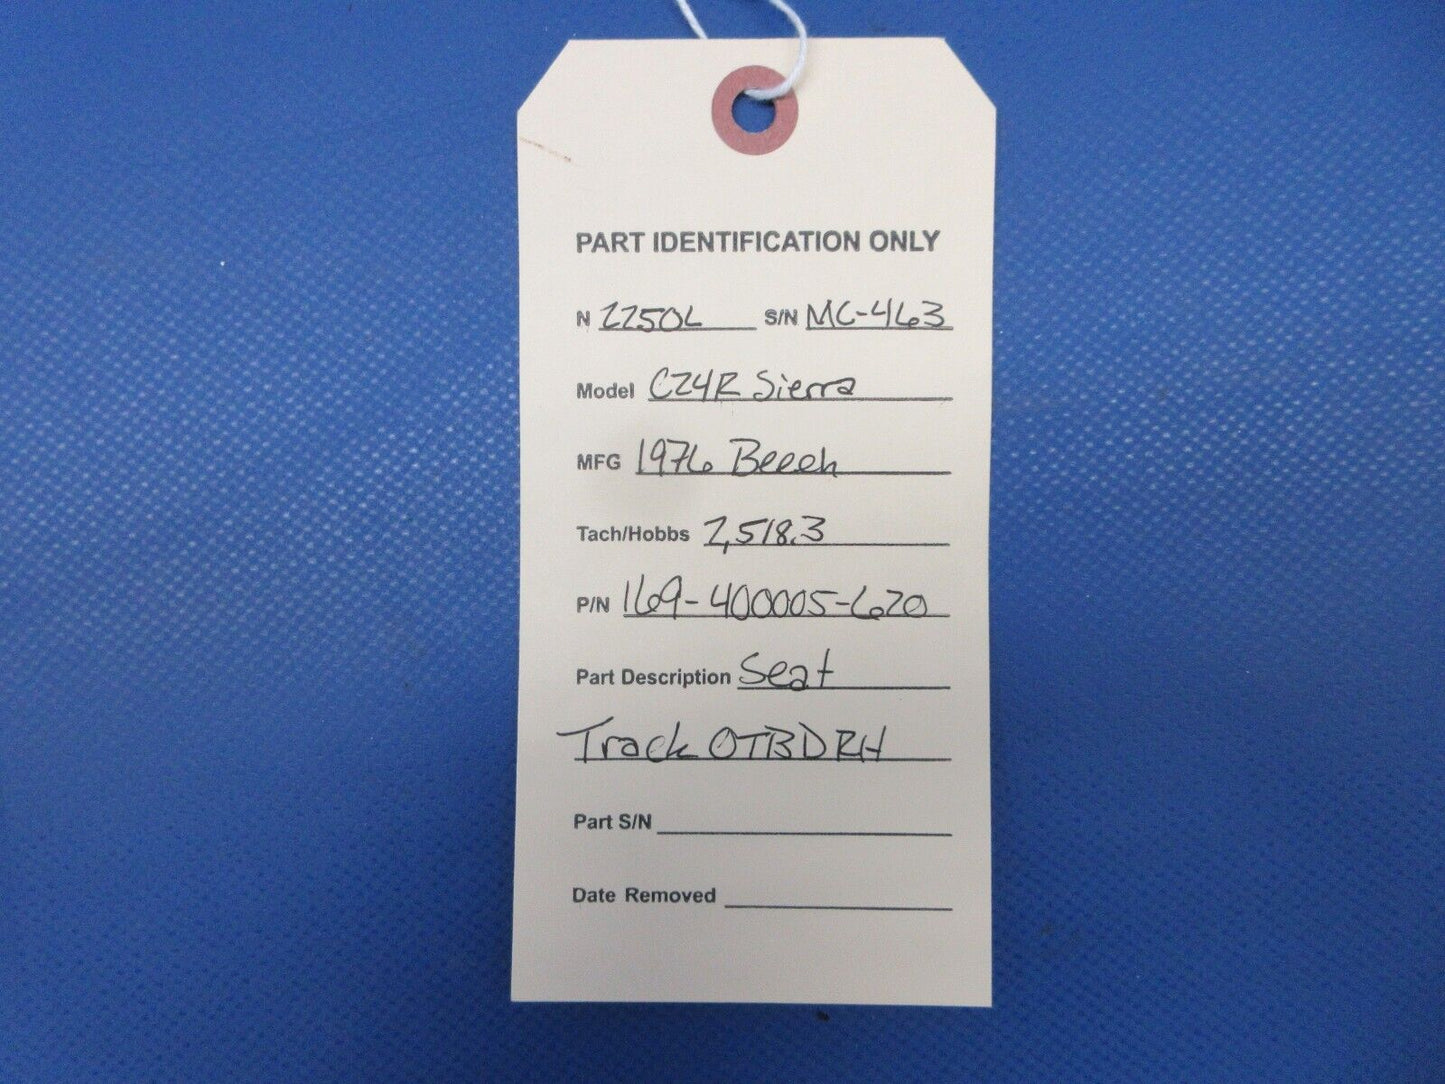 PART IDENTIFICATION ONLY
N 2250L S/N MC-463
Model C24R Sierra
MFG 1976 Beech
Tach/Hobbs 2,518.3
P/N 169-400005-620
Part Description Seat
Track OTBD RH
Part S/N
Date Removed